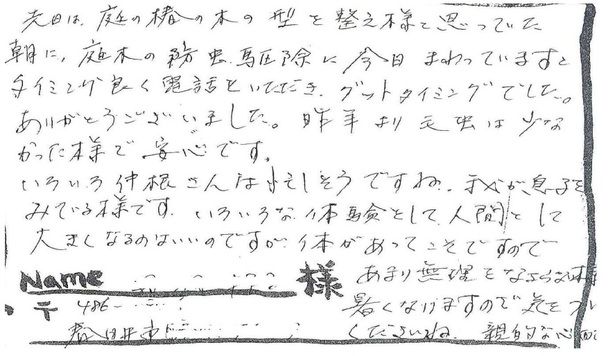 先日は、庭の椿の木の型を整え様と思っていた
朝に、庭木の防虫駆除に今日まわっていますと
タイミング良く電話をいただき、グットタイミングでした。
ありがとうございました。昨年より毛虫は少な
かった様で安心です。
いろいろ仲根さんは忙しそうですね。我が息子を
みてる様です。いろいろな体験として、人間として
大きくなるのはいいのですが、体があってこそですので
あまり無理をなさらぬ様
暑くなりますので気をつ
くださいね。親的な心
Name 様
〒486-
春日井市